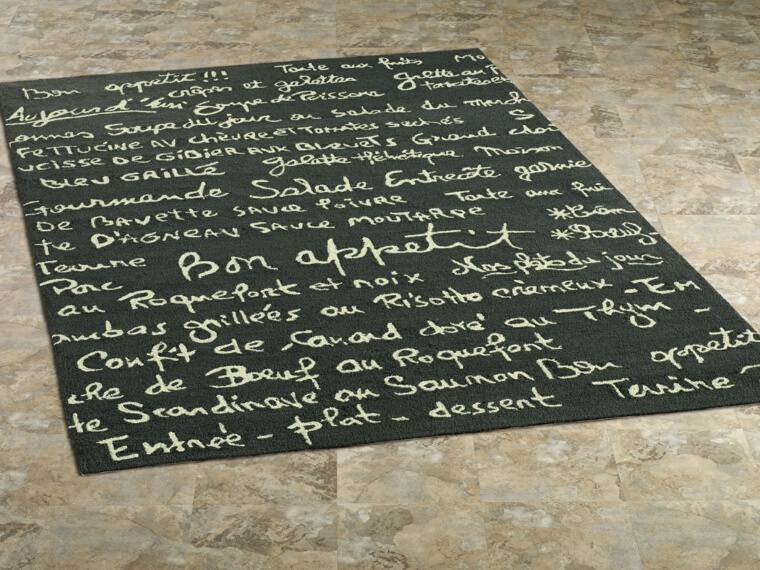 Bon appetit!!! Tarte aux fruits Mo
crêpes et galettes
Aujourd'hui Soupe de Poissons
ennes Soupe du jour ou salade du march
FETTUCINE AU CHÈVRE ET TOMATES SECHÉS S
UCISSE DE GIBIER AUX BLEUETS Grand choi
BLEU GRILLÉ galette Maison
Gourmande Salade Entrecote garnie
DE BAVETTE SAUCE POIVRE Tarte aux frui
TE D'AGNEAU SAUCE MOUTARDE
Terrine Bon appetit
Porc Nos plats du jour
au Roquefort et noix
ambas grillées au Risotto crémeux - Em
Confit de Canard doré au Thym -
che de Bœuf au Roquefort
te Scandinave au Saumon Bon appetit
Entrée - plat - dessert Terrine -